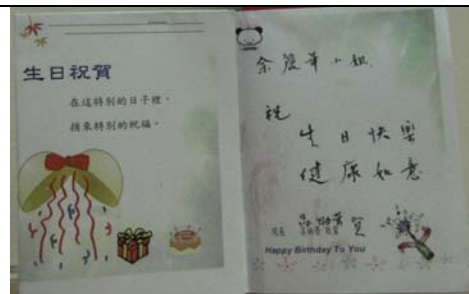 生日祝賀
在這特別的日子裡，
捎來特別的祝福。
小姐
祝
生日快樂
健康如意
院長 賀
Happy Birthday To You